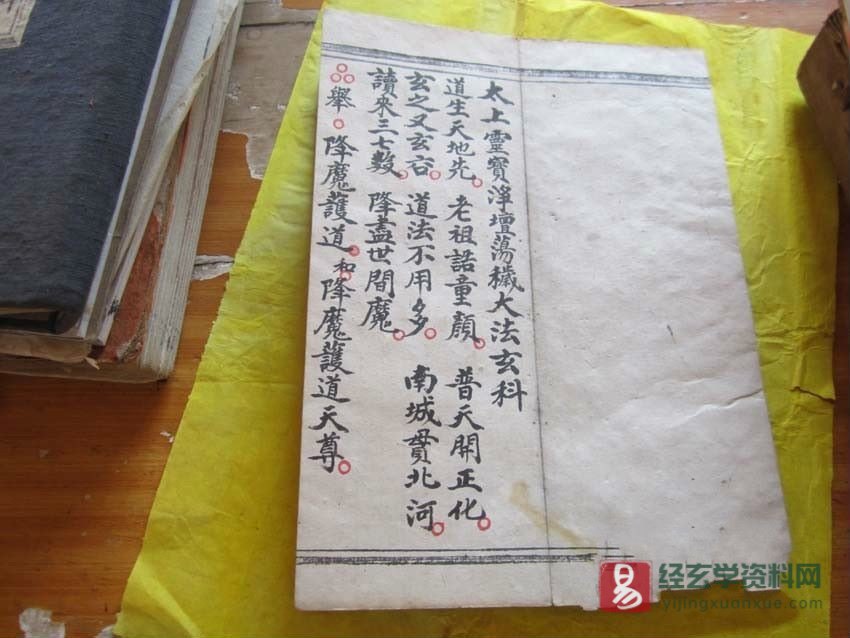 太上靈寶淨壇蕩穢大法玄科
道生天地先。老祖話童顏。普天開正化。
玄之又玄谷。道法不用多。南城貫北河。
讀來三七数。降盡世間魔。
舉。降魔護道。和降魔護道天尊。
易
经玄学资料网
yijingxuonxue.com